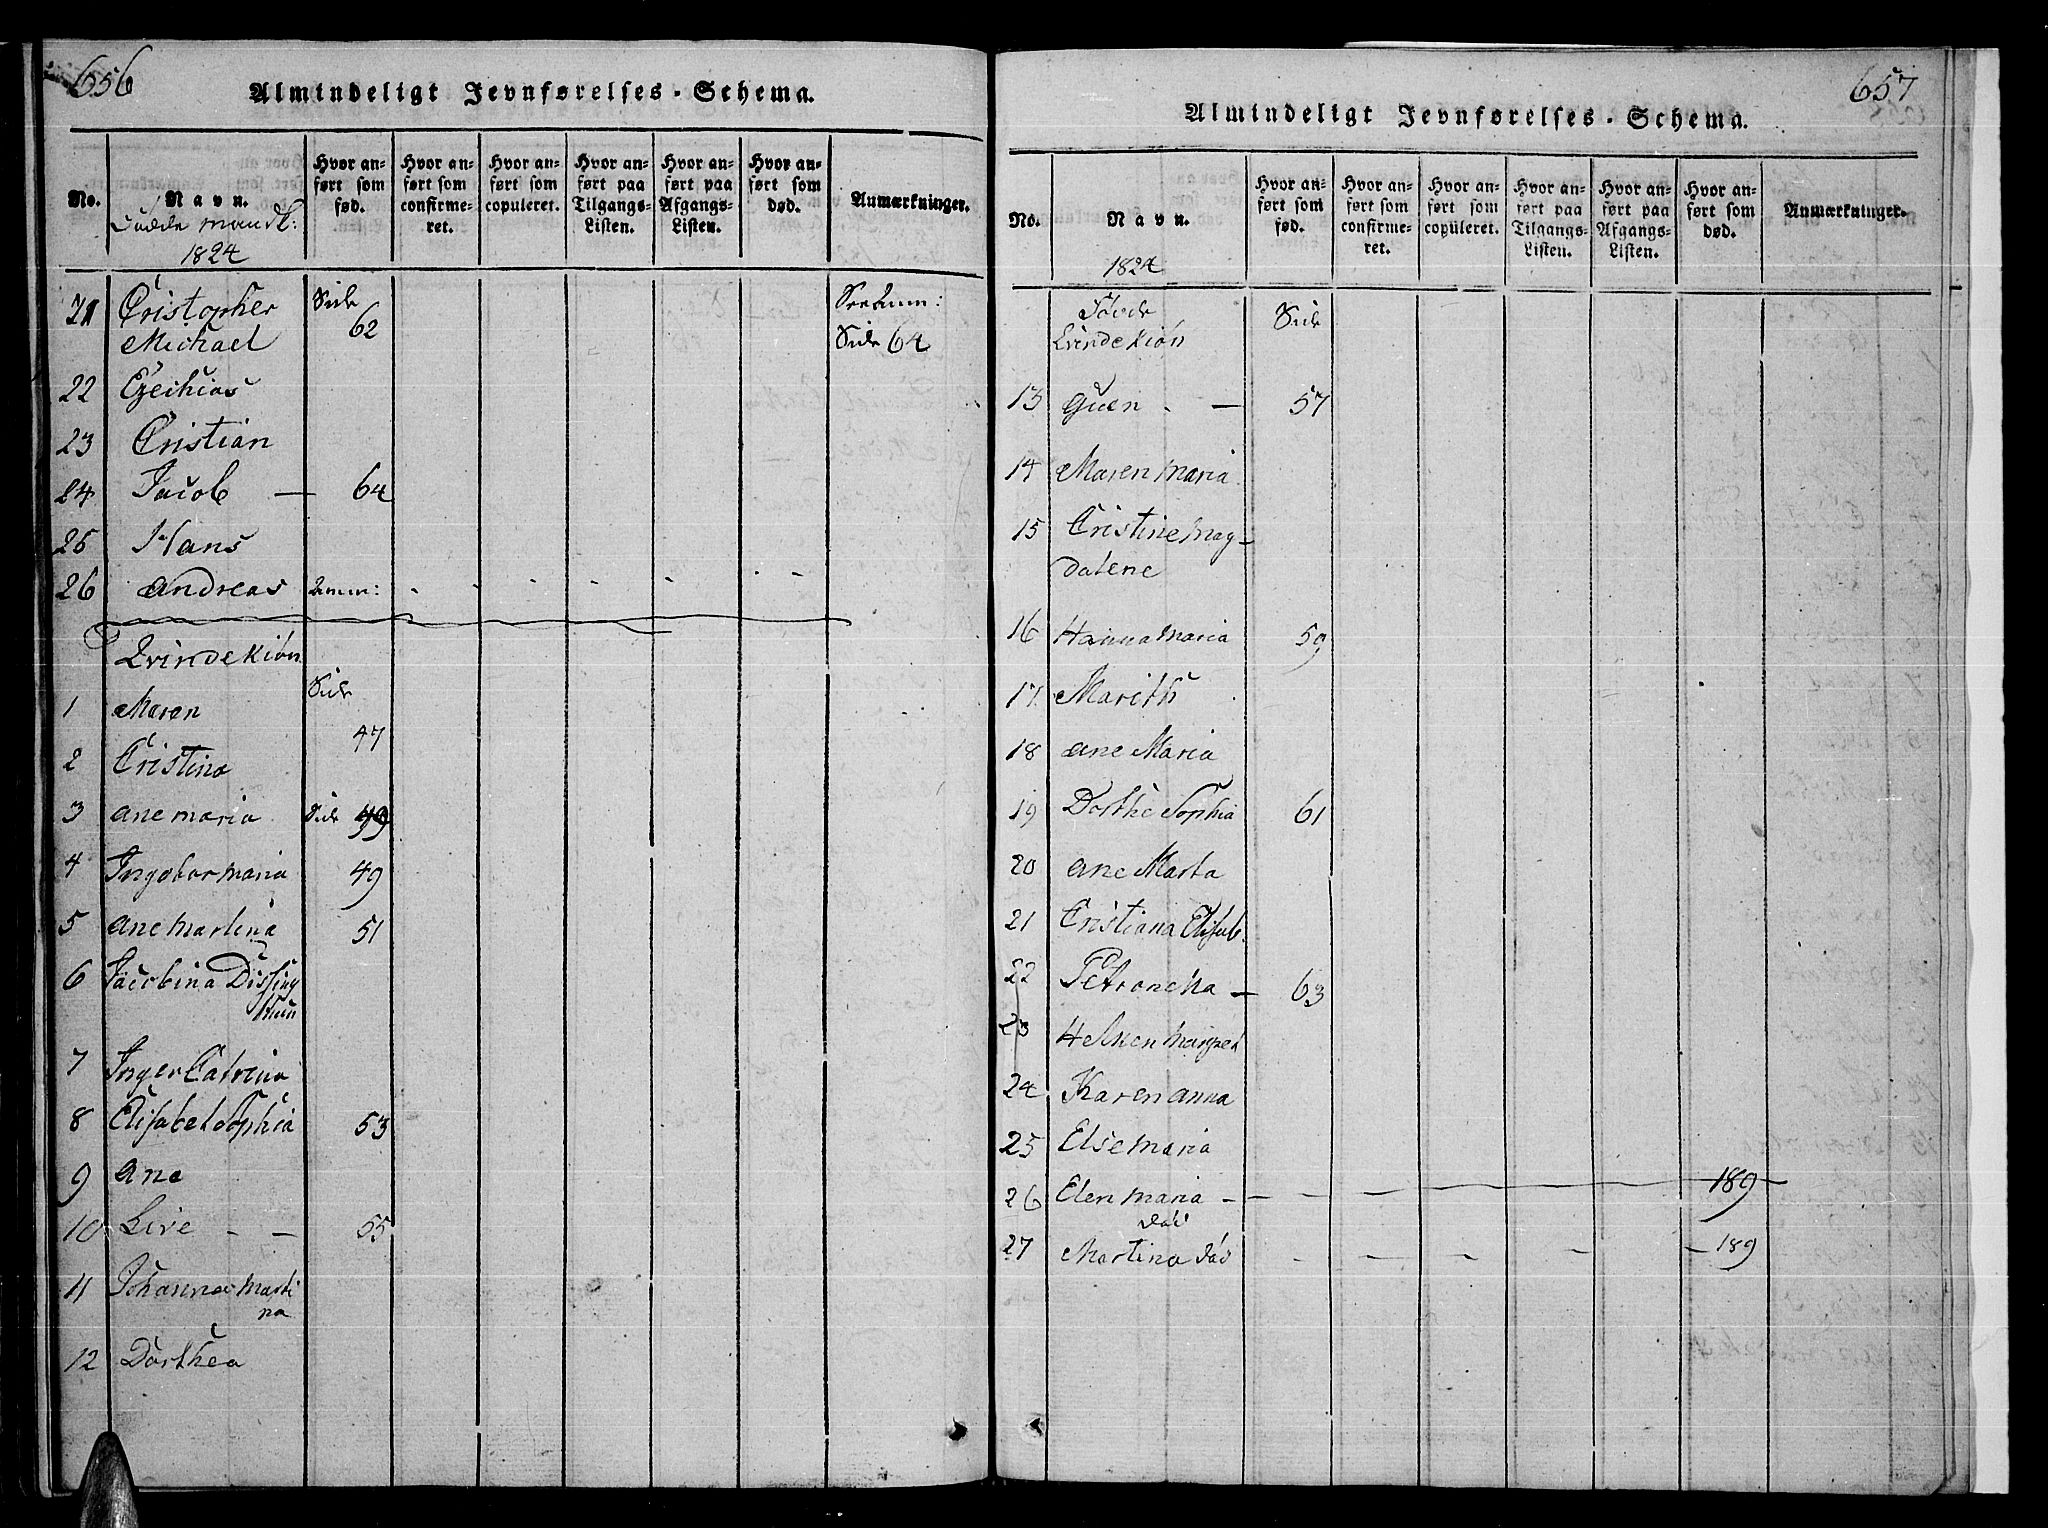 656
Almindeligt Jevnførelses-Schema.
No.
Navn.
Hvor an-
ført som
fød.
Hvor an-
ført som
confirme-
ret.
Hvor an-
ført som
copuleret.
Hvor an-
ført paa
Tilgangs-
Listen.
Hvor an-
ført paa
Afgangs-
Listen.
Hvor an-
ført som
død.
Anmærkninger.
Födde mandk:
1824
21 Cristopher Side
Michael 62 Side 64
22 Ezechias
23 Cristian
24 Jacob — 64
25 Hans
26 Andreas anm:
Qvindekiön
1 Maren Side
47
2 Cristina
3 Ane maria Side 49
4 Ingebor maria 49
5 Ane Martina 51
6 Jacobina Dissing
Thun
7 Inger Catrina
8 Elisabet Sophia 53
9 Ane
10 Live - - 55
11 Johanna Marti
na
12 Dorthea
657
Almindeligt Jevnførelses-Schema.
No.
Navn.
Hvor an-
ført som
fød.
Hvor an-
ført som
confirme-
ret.
Hvor an-
ført som
copuleret.
Hvor an-
ført paa
Tilgangs-
Listen.
Hvor an-
ført paa
Afgangs-
Listen.
Hvor an-
ført som
død.
Anmærkninger.
1824
Födde
Qvindekiön Side
13 Guen - — 57
14 Maren Maria
15 Cristine Mag-
dalene
16 Hanna Maria 59
17 Marith
18 Ane Maria
19 Dorthe Sophia 61
20 Ane Marta
21 Cristiana Elisab.
22 Petronella — 63
23 Helken Margret
24 Karen Anna
25 Else Maria
26 Elen Maria - 189
död
27 Martina död - 189